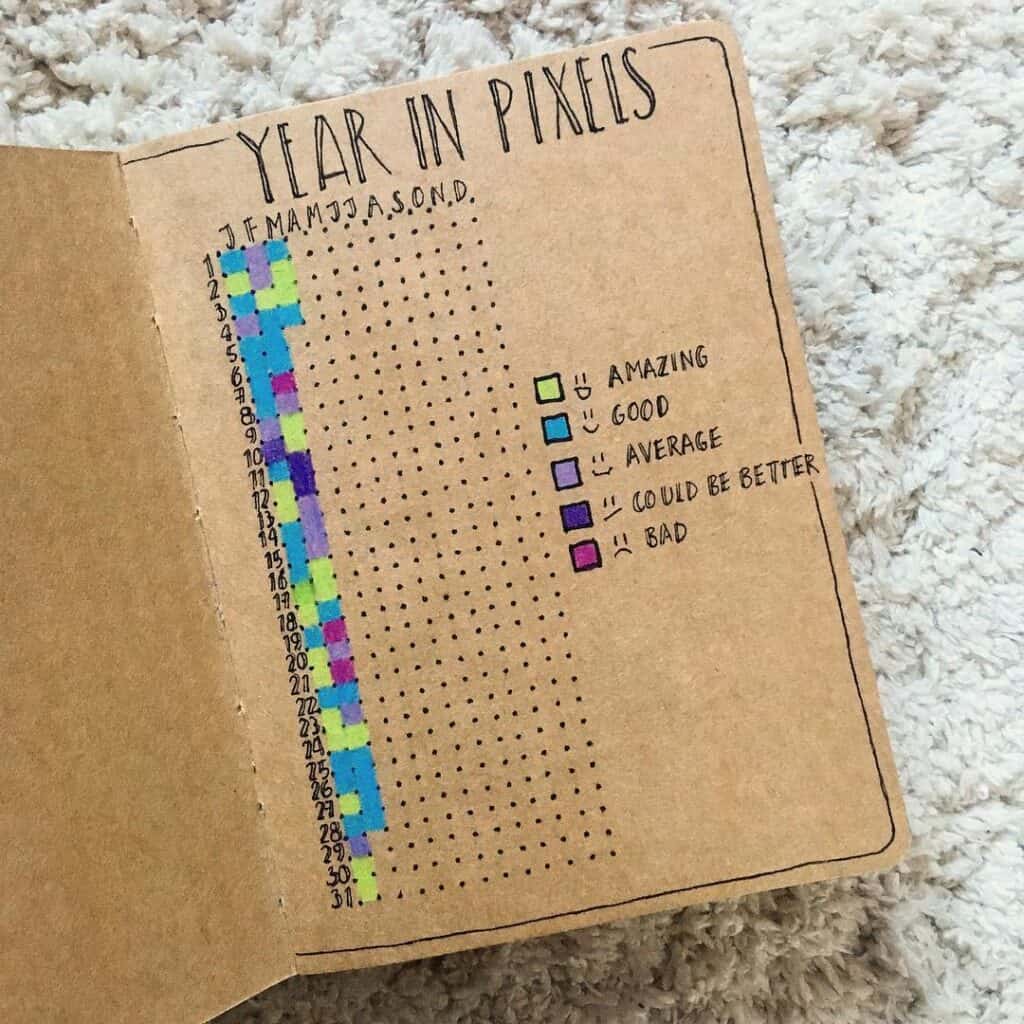 YEAR IN PIXELS
J F M A M J J A S O N D
1
2
3
4
5
6
7
8
9
10
11
12
13
14
15
16
17
18
19
20
21
22
23
24
25
26
27
28
29
30
31
AMAZING
GOOD
AVERAGE
COULD BE BETTER
BAD